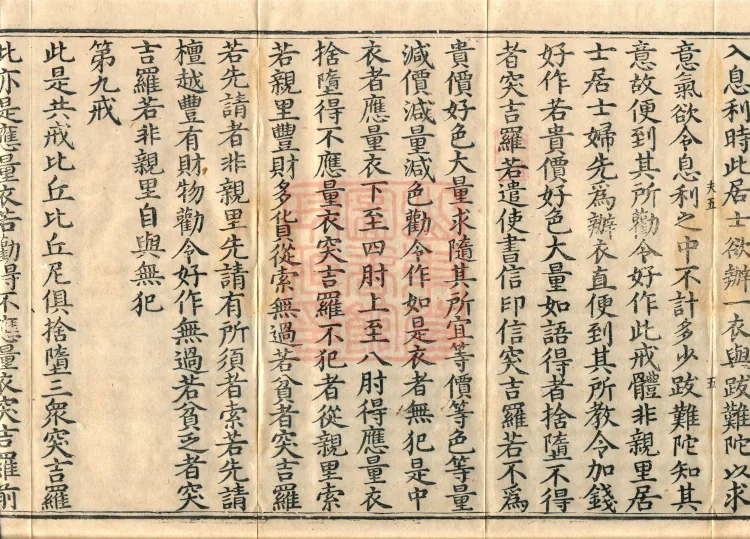 入息利時此居士欲辦一衣與跋難陀以求
夫五
五
意氣欲令息利之中不計多少跋難陀知其
意故便到其所勸令好作此戒體非親里居
士居士婦先為辦衣直便到其所教令加錢
好作若貴價好色大量如語得者捨墮不得
者突吉羅若遣使書信印信突吉羅若不為
貴價好色大量求隨其所宜等價等色等量
減價減量減色勸令作如是衣者無犯是中
衣者應量衣下至四肘上至八肘得應量衣
捨墮得不應量衣突吉羅不犯者從親里索
若親里豐財多貨從索無過若貧者突吉羅
若先請者非親里先請有所須者索若先請
檀越豐有財物勸令好作無過若貧乏者突
吉羅若非親里自與無犯
第九戒
此是共戒比丘比丘尼俱捨墮三衆突吉羅
此亦是應量衣若勸得不應量衣突吉羅前